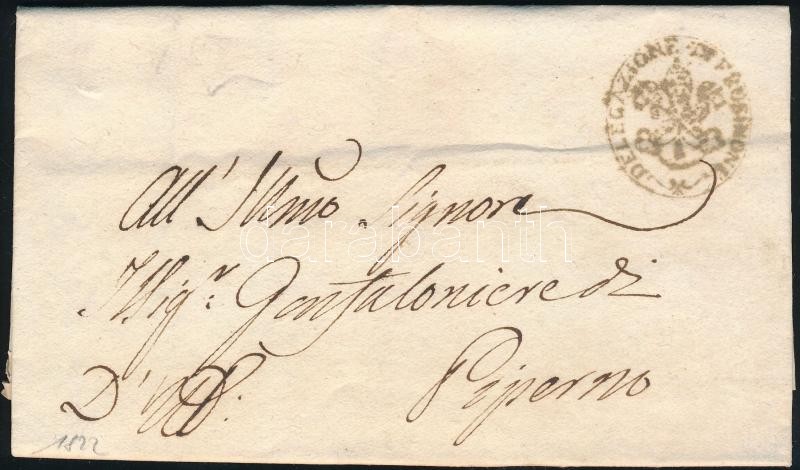 DELEGAZIONE DI FROSINONE
All' Illmo Signore
Il Sigr Gonfaloniere di
D' Uff: Piperno
1822
darabanth